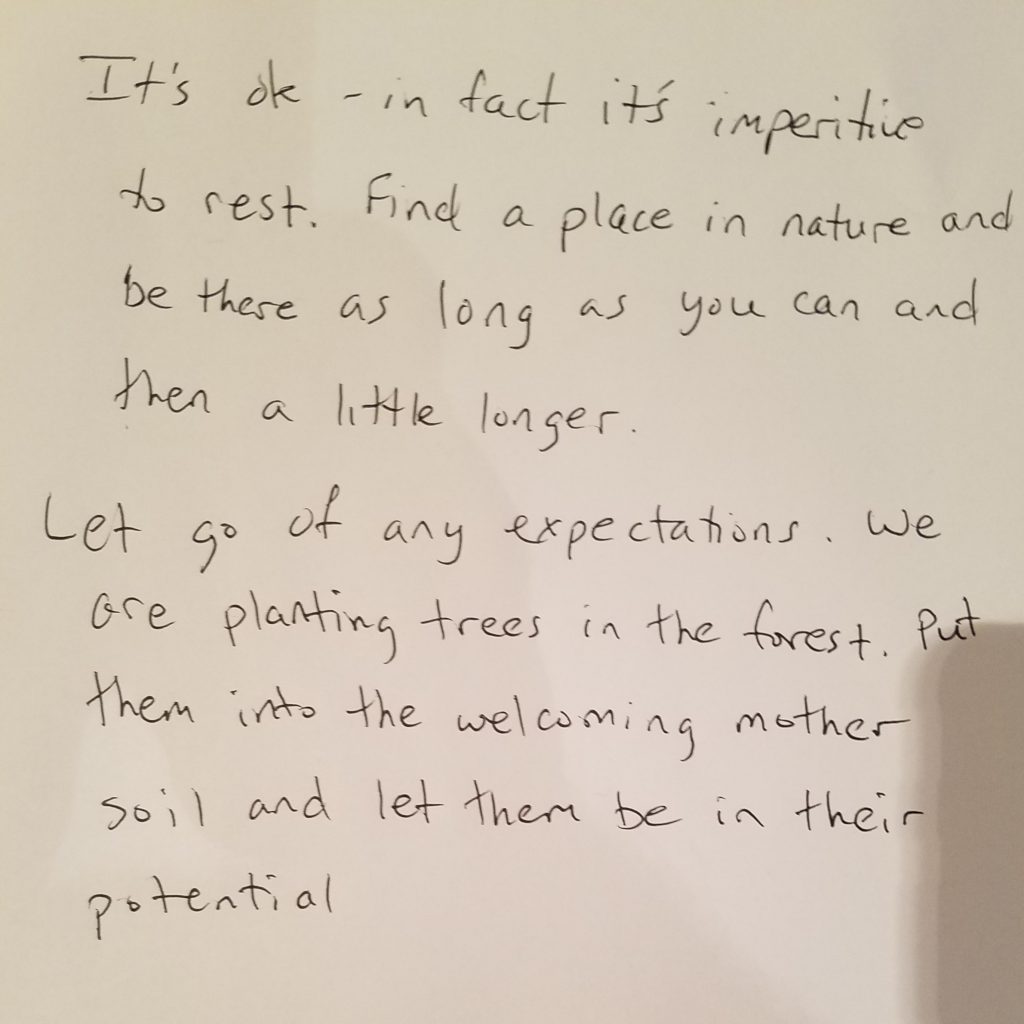 It's ok - in fact it's imperitive
to rest. Find a place in nature and
be there as long as you can and
then a little longer.
Let go of any expectations. We
are planting trees in the forest. Put
them into the welcoming mother
soil and let them be in their
potential